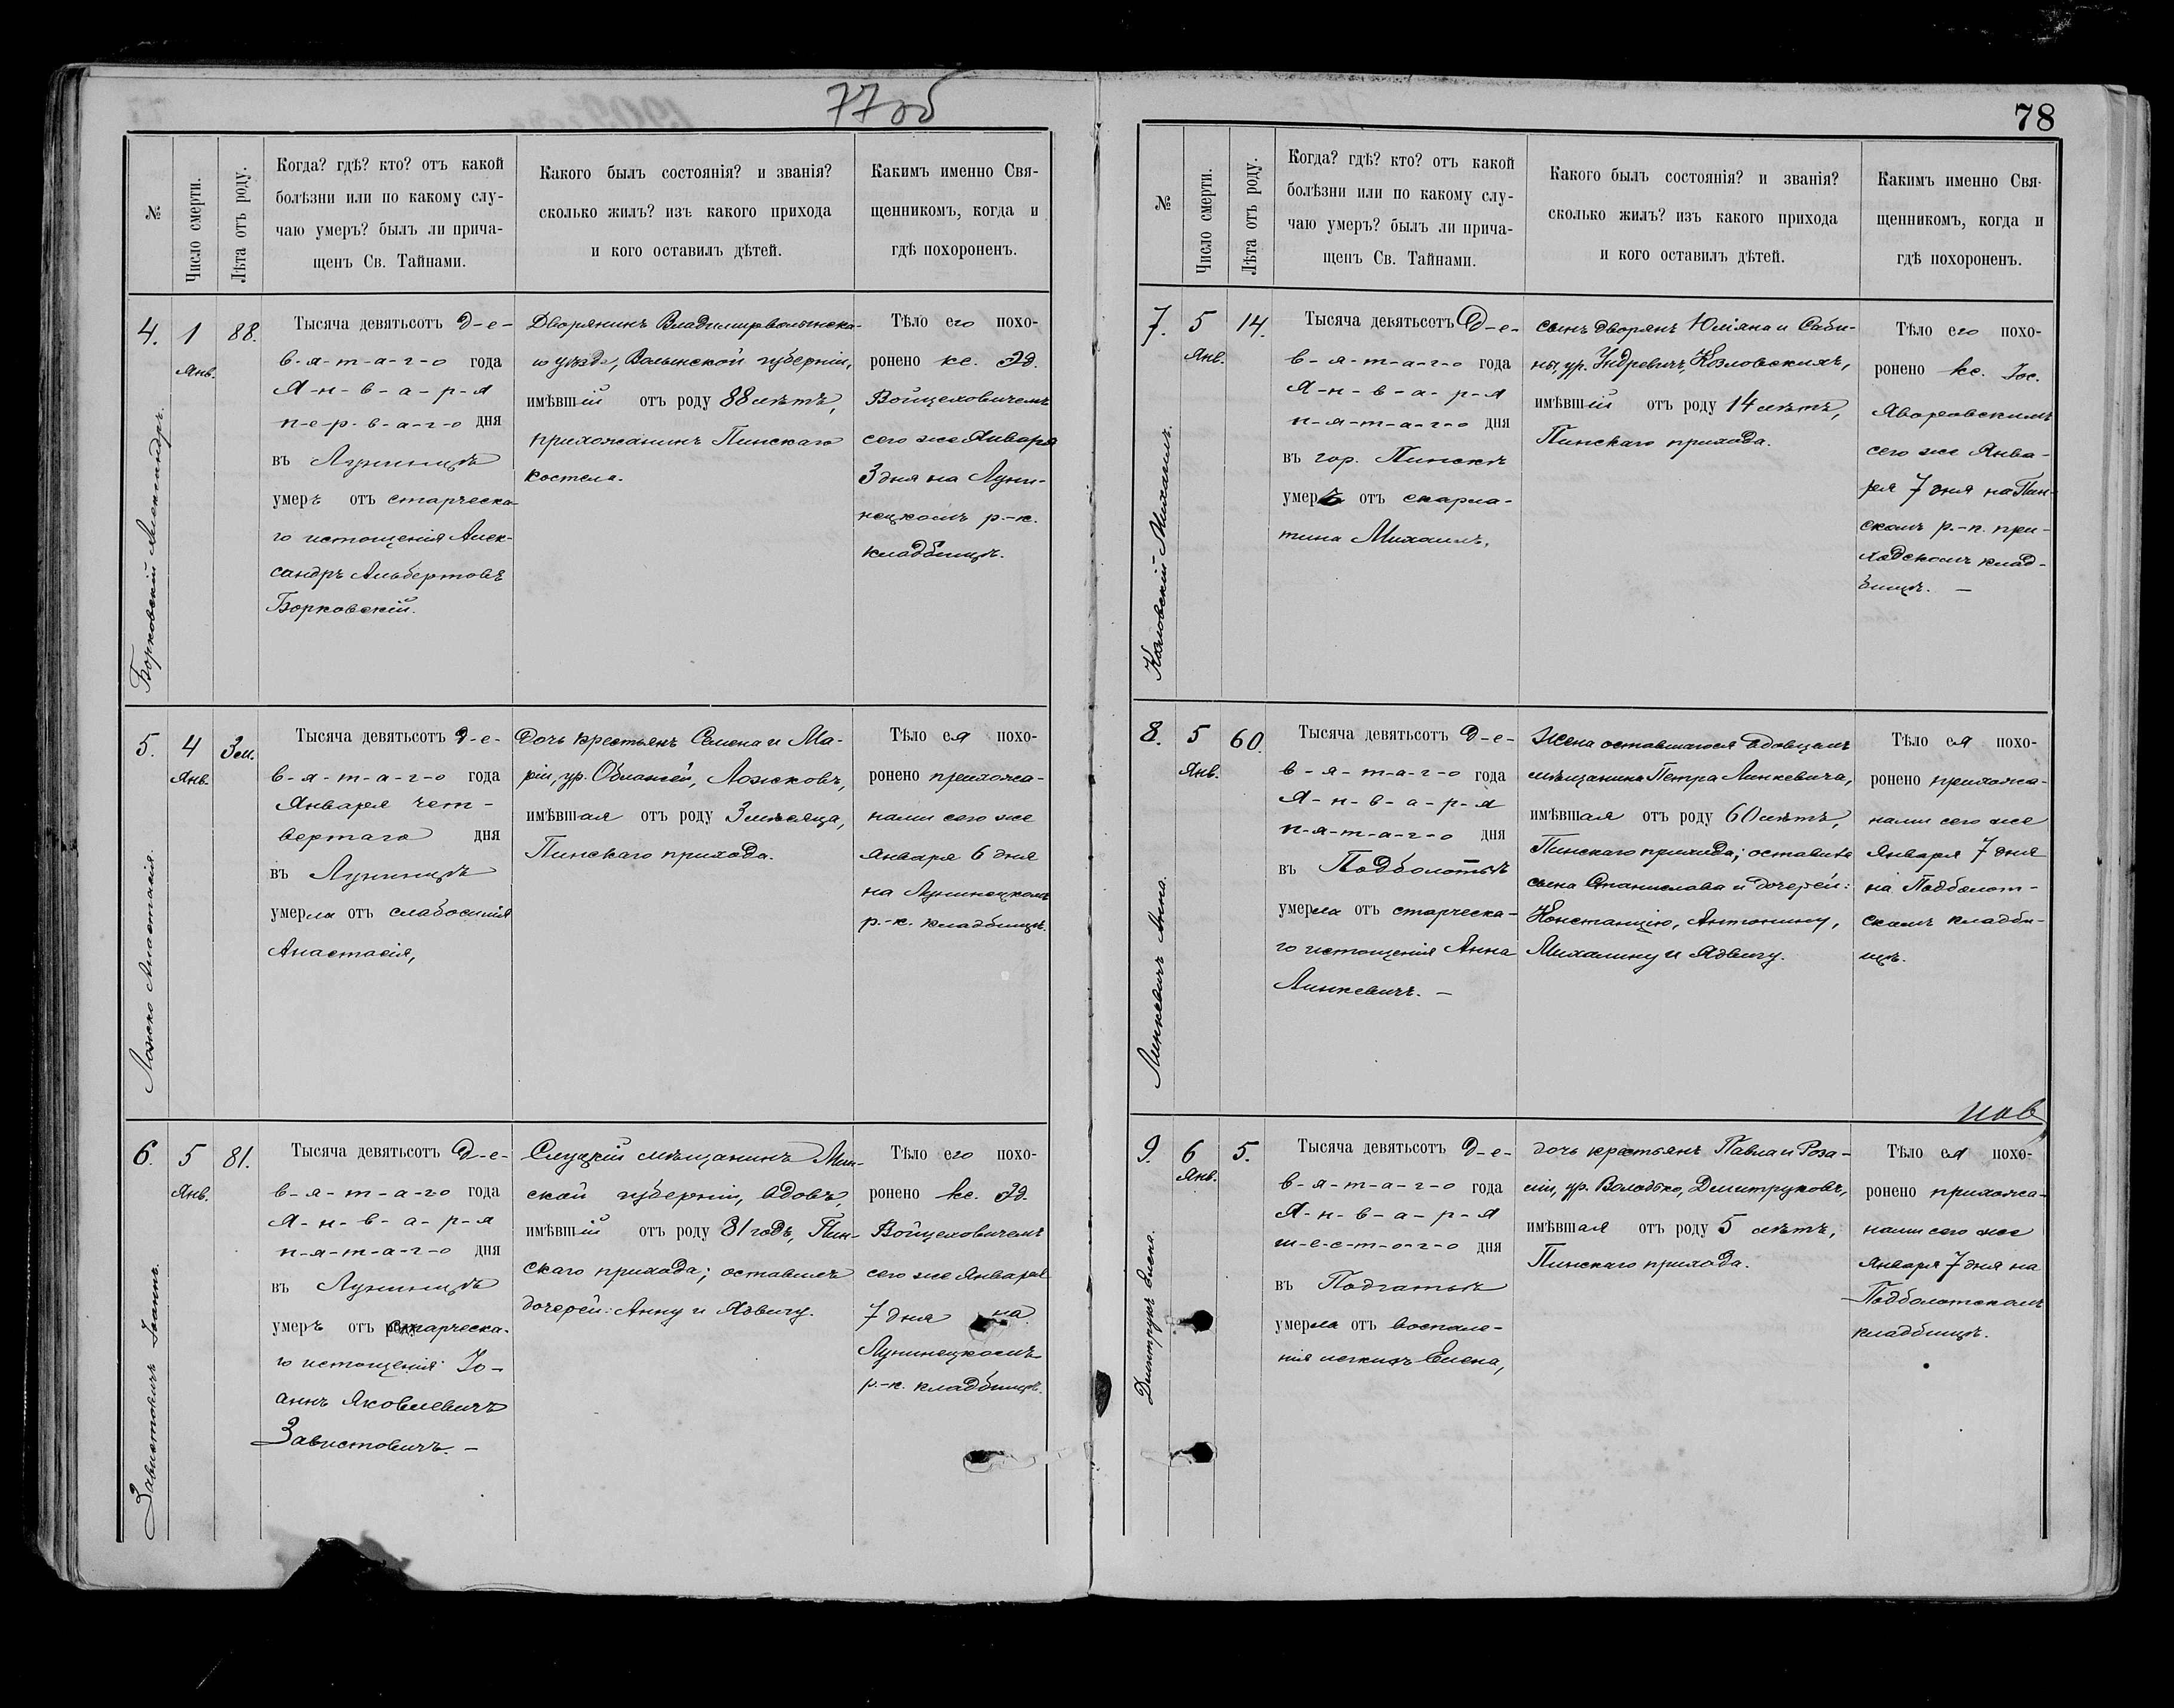 77 об
№
Число смерти.
Лѣта отъ роду.
Когда? гдѣ? кто? отъ какой
болѣзни или по какому слу-
чаю умеръ? былъ ли прича-
щенъ Св. Тайнами.
Какого былъ состоянія? и званія?
сколько жилъ? изъ какого прихода
и кого оставилъ дѣтей.
Какимъ именно Свя-
щенникомъ, когда и
гдѣ похороненъ.
4.
Борковскій Александръ.
1
Янв.
88.
Тысяча девятьсотъ д-е-
в-я-т-а-г-о года
Я-н-в-а-р-я
п-е-р-в-а-г-о дня
въ Лунинцѣ
умеръ отъ старческа-
го истощенія Алек-
сандръ Альбертовъ
Борковскій.
Дворянинъ Владимирволынска-
го уѣзда, Волынской губерніи,
имѣвшій отъ роду 88 лѣтъ,
прихожанинъ Пинскаго
костела.
Тѣло его похо-
ронено кс. Эд.
Войцеховичемъ
сего же Января
3 дня на Луни-
нецкомъ р.-к.
кладбищѣ.
5.
Ложко Анастасія.
4
Янв.
3 м.
Тысяча девятьсотъ д-е-
в-я-т-а-г-о года
Января чет-
вертаго дня
въ Лунинцѣ
умерла отъ слабосилія
Анастасія,
Дочь крестьянъ Семена и Ма-
ріи, ур. Ложковъ,
имѣвшая отъ роду 3 мѣсяца,
Пинскаго прихода.
Тѣло ея похо-
ронено прихожа-
нами сего же
Января 6 дня
на Лунинецкомъ
р.-к. кладбищѣ.
6.
Завистовичъ Іоаннъ.
5
Янв.
81.
Тысяча девятьсотъ д-е-
в-я-т-а-г-о года
Я-н-в-а-р-я
п-я-т-а-г-о дня
въ Лунинцѣ
умеръ отъ старческа-
го истощенія Іо-
аннъ Яковлевичъ
Завистовичъ. —
Слуцкій мѣщанинъ Мин-
ской губерніи, вдовъ,
имѣвшій отъ роду 81 годъ, Пин-
скаго прихода; оставилъ
дочерей: Анну и Ядвигу.
Тѣло его похо-
ронено кс. Эд.
Войцеховичемъ
сего же Января
7 дня на
Лунинецкомъ
р.-к. кладбищѣ.
78
№
Число смерти.
Лѣта отъ роду.
Когда? гдѣ? кто? отъ какой
болѣзни или по какому слу-
чаю умеръ? былъ ли прича-
щенъ Св. Тайнами.
Какого былъ состоянія? и званія?
сколько жилъ? изъ какого прихода
и кого оставилъ дѣтей.
Какимъ именно Свя-
щенникомъ, когда и
гдѣ похороненъ.
7.
Козловскій Михаилъ.
5
Янв.
14.
Тысяча девятьсотъ д-е-
в-я-т-а-г-о года
Я-н-в-а-р-я
п-я-т-а-г-о дня
въ гор. Пинскѣ
умеръ отъ скарла-
тина Михаилъ,
сынъ дворянъ Юліяна и Саби-
ны, ур. Ундревичъ, Козловскихъ,
имѣвшій отъ роду 14 лѣтъ,
Пинскаго прихода.
Тѣло его похо-
ронено кс. Іос.
Яворовскимъ
сего же Янва-
ря 7 дня на Пин-
скомъ р.-к. при-
ходскомъ клад-
бищѣ. —
8.
Линкевичъ Анна.
5
Янв.
60.
Тысяча девятьсотъ д-е-
в-я-т-а-г-о года
Я-н-в-а-р-я
п-я-т-а-г-о дня
въ Подболотьѣ
умерла отъ старческа-
го истощенія Анна
Линкевичъ. —
Жена оставшагося вдовцемъ
мѣщанина Петра Линкевича,
имѣвшая отъ роду 60 лѣтъ,
Пинскаго прихода; оставила
сына Станислава и дочерей:
Констанцію, Антонину,
Михалину и Ядвигу.
Тѣло ея похо-
ронено прихожа-
нами сего же
Января 7 дня
на Подболот-
скомъ кладби-
щѣ.
9.
Дмитрукъ Елена.
6
Янв.
5.
Тысяча девятьсотъ д-е-
в-я-т-а-г-о года
Я-н-в-а-р-я
ш-е-с-т-о-г-о дня
въ Подгатьѣ
умерла отъ воспале-
нія легкихъ Елена,
дочь крестьянъ Павла и Роза-
ліи, ур. Володько, Дмитруковъ,
имѣвшая отъ роду 5 лѣтъ,
Пинскаго прихода.
Тѣло ея похо-
ронено прихожа-
нами сего же
Января 7 дня на
Подболотскомъ
кладбищѣ.